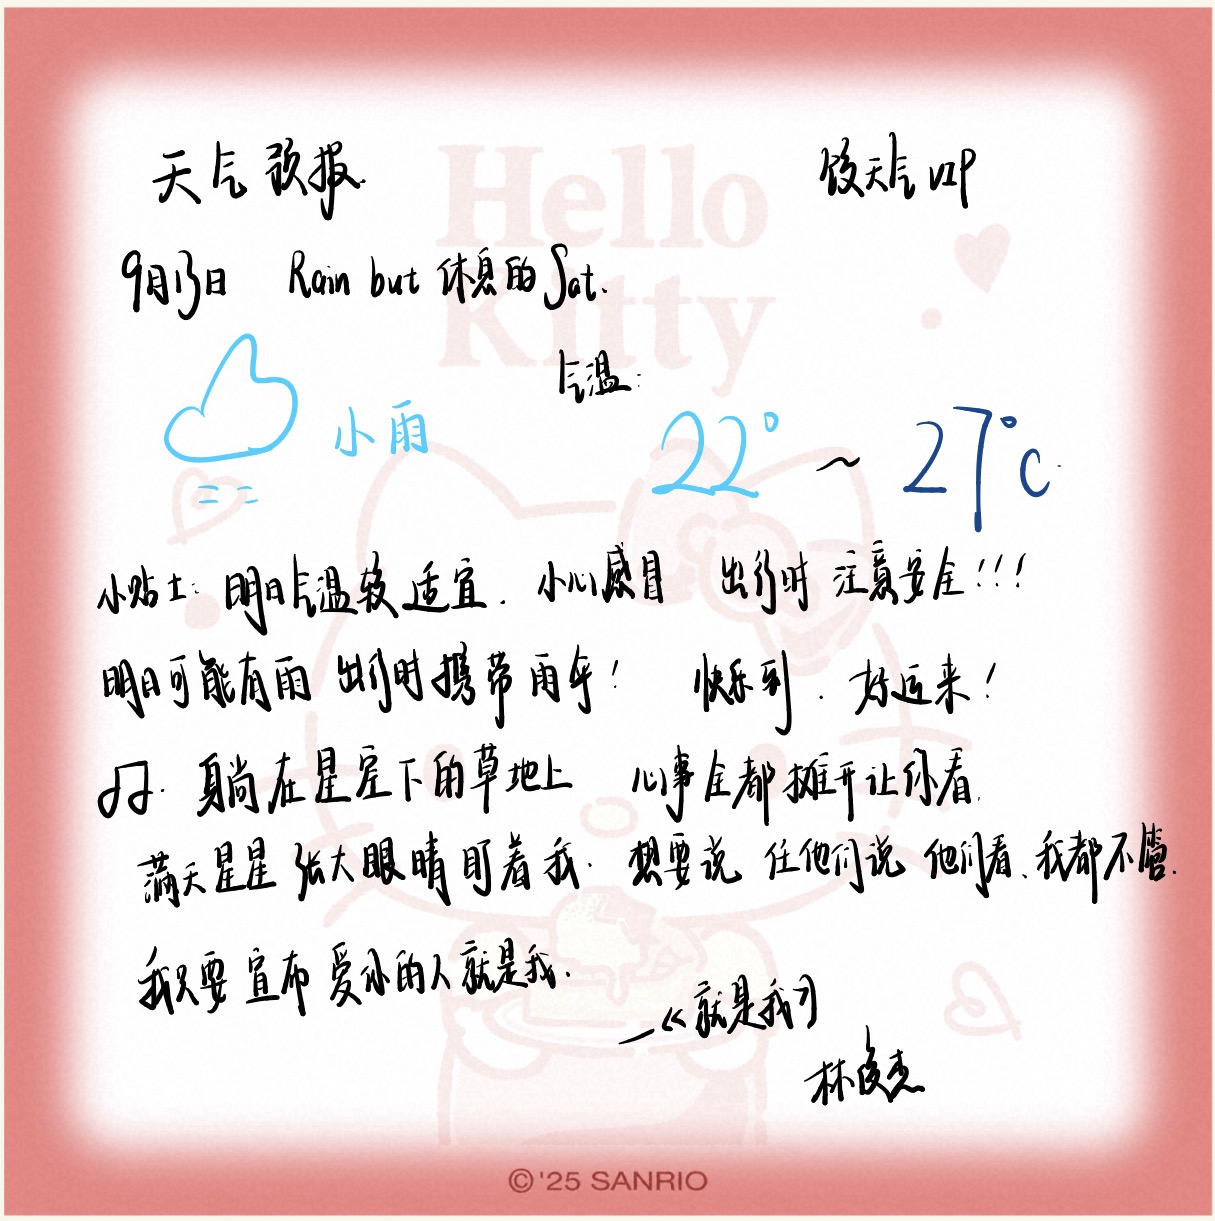 天气预报
饺天气VIP
Hello
Kitty
9月13日 Rain but 休息的Sat.
气温:
小雨
22° ~ 27°C
小贴士: 明日气温较适宜. 小心感冒 出行时 注意安全!!!
明日可能有雨 出行时携带雨伞! 快乐到. 好运来!
♫. 躺在星空下的草地上 心事全都摊开让你看.
满天星星 张大眼睛盯着我. 想要说 任他们说 他们看、我都不管.
我只要 宣布 爱你的人就是我.
—《就是我》
林俊杰
©'25 SANRIO